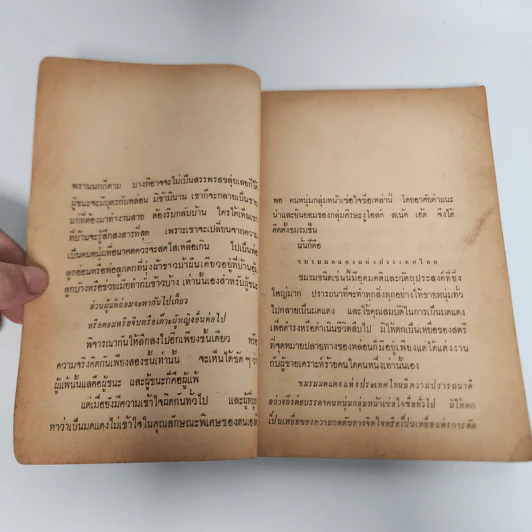 พรานนกก็ตาม บางทีอาจจะไม่เป็นสรรพรสขลุ่ยเลยก็ได้
ผู้ชนะจะมีบุตรกับหล่อน มิช้ามินาน เขาก็จะกลายเป็นชาย
แก่ที่ต้องมาทำงานสาย ต้องรีบกลับบ้าน ใครได้เห็นเขา
ที่บ้านจะรู้สึกสงสารที่สุด เพราะเขาจะเปลี่ยนจากความ
เป็นหนุ่มที่อนาคตควรจะสดใสเหลือเกิน ไปเป็นพ่อ
ลูกอ่อนหรือพ่อลูกดกที่นุ่งผ้าขาวม้าผืนเดียวอยู่ที่บ้านอุ้ม
ลูกบ้างหรือช่วยเมียทำกับข้าวบ้าง เท่านั้นเองสำหรับผู้ชนะ
ส่วนผู้แพ้ย่อมจะพากันไปเที่ยว
หรือดอมหรือจีบหรือเต๊าะผู้หญิงอื่นต่อไป
พิจารณากันให้ลึกลงไปอีกเพียงชั้นเดียว หรือ
ความจริงคิดกันเพียงสองชั้นเท่านั้น จะเห็นได้ชัด ๆ
ผู้แพ้นั้นแลคือผู้ชนะ และผู้ชนะก็คือผู้แพ้
แต่เมื่อยังมีความเข้าใจผิดกันทั่วไป และผู้ที่ถูก
หาว่าเป็นมดแดงไม่เข้าใจในคุณลักษณะพิเศษของตนเองดี
พอ คนหนุ่มกลุ่มหน้าเซ่อใจซื่อเหล่านี้ โดยอาศัยคำแนะ
นำและยินยอมของกลุ่มศีรษะงูไอสด์ สเนค เฮ้ด จึงได้
คิดตั้งชมรมขึ้น
นั่นก็คือ
ชมรมมดแดงแห่งประเทศไทย
ชมรมชนิดเช่นนี้มีอุดมคติและวัตถุประสงค์ที่ยิ่ง
ใหญ่มาก ปรารถนาที่จะทำทุกสิ่งทุกอย่างให้ชายหนุ่มทั่ว
ไปกลายเป็นมดแดง และใช้คุณสมบัติในการเป็นมดแดง
เพื่อดำรงหรือดำเนินชีวิตสืบไป มิให้ตกเป็นเหยื่อของสตรี
ที่จุดหมายปลายทางของหล่อนก็มีอยู่เพียงแต่ได้แต่งงาน
กับผู้ชายเคราะห์ร้ายคนใดคนหนึ่งเท่านั้นเอง
ชมรมมดแดงแห่งประเทศไทยมีความปรารถนาดี
อย่างยิ่งต่อบรรดาคนหนุ่มกลุ่มหน้าเซ่อใจซื่อทั่วไป มิให้ตก
เป็นเหยื่อของความกดดันทางจิตใจหรือเป็นเหยื่อแห่งการตัด